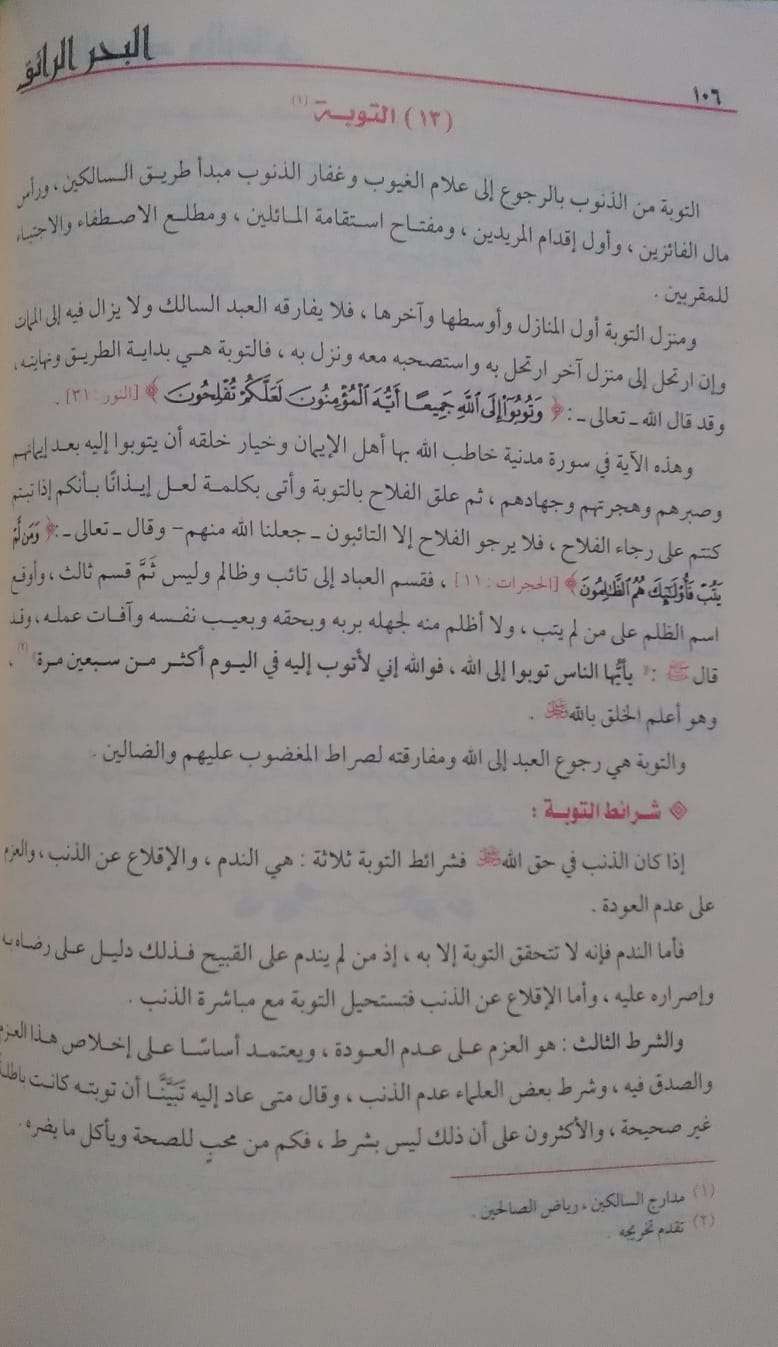 البحر الرائق
١٠٦
(١٣) التوبـة (١)
التوبة من الذنوب بالرجوع إلى علام الغيوب وغفار الذنوب مبدأ طريق السالكين ، ورأس
مال الفائزين ، وأول إقدام المريدين ، ومفتاح استقامة المائلين ، ومطلع الاصطفاء والاجتباء
للمقربين .
ومنزل التوبة أول المنازل وأوسطها وآخرها ، فلا يفارقه العبد السالك ولا يزال فيه إلى الممات
وإن ارتحل إلى منزل آخر ارتحل به واستصحبه معه ونزل به ، فالتوبة هي بداية الطريق ونهايته،
وقد قال الله ـ تعالى ـ :﴿ وَتُوبُوٓا۟ إِلَى ٱللَّهِ جَمِيعًا أَيُّهَ ٱلْمُؤْمِنُونَ لَعَلَّكُمْ تُفْلِحُونَ ﴾ [النور : ٣١] .
وهذه الآية في سورة مدنية خاطب الله بها أهل الإيمان وخيار خلقه أن يتوبوا إليه بعد إيمانهم
وصبرهم وهجرتهم وجهادهم ، ثم علق الفلاح بالتوبة وأتى بكلمة لعل إيذانًا بأنكم إذا تبتم
كنتم على رجاء الفلاح ، فلا يرجو الفلاح إلا التائبون ـ جعلنا الله منهم– وقال ـ تعالى ـ :﴿ وَمَن لَّمْ
يَتُبْ فَأُو۟لَٰٓئِكَ هُمُ ٱلظَّٰلِمُونَ ﴾ [الحجرات : ١١] ، فقسم العباد إلى تائب وظالم وليس ثَمَّ قسم ثالث ، وأوقع
اسم الظلم على من لم يتب ، ولا أظلم منه لجهله بربه وبحقه وبعيب نفسه وآفات عمله ، وقد
قال ﷺ : « يأيُّها الناس توبوا إلى الله ، فوالله إني لأتوب إليه في اليوم أكثر من سبعين مرة» (٢) .
وهو أعلم الخلق بالله ﷻ .
والتوبة هي رجوع العبد إلى الله ومفارقته لصراط المغضوب عليهم والضالين .
شرائط التوبة :
إذا كان الذنب في حق الله ﷻ فشرائط التوبة ثلاثة : هي الندم ، والإقلاع عن الذنب ، والعزم
على عدم العودة .
فأما الندم فإنه لا تتحقق التوبة إلا به ، إذ من لم يندم على القبيح فذلك دليل على رضاه به
وإصراره عليه ، وأما الإقلاع عن الذنب فتستحيل التوبة مع مباشرة الذنب .
والشرط الثالث : هو العزم على عدم العودة ، ويعتمد أساسًا على إخلاص هذا العزم
والصدق فيه ، وشرط بعض العلماء عدم الذنب ، وقال متى عاد إليه تَبَيَّنَّا أن توبته كانت باطلة
غير صحيحة ، والأكثرون على أن ذلك ليس بشرط ، فكم من محبٍ للصحة ويأكل ما يضره .
(١) مدارج السالكين ، رياض الصالحين .
(٢) تقدم تخريجه .